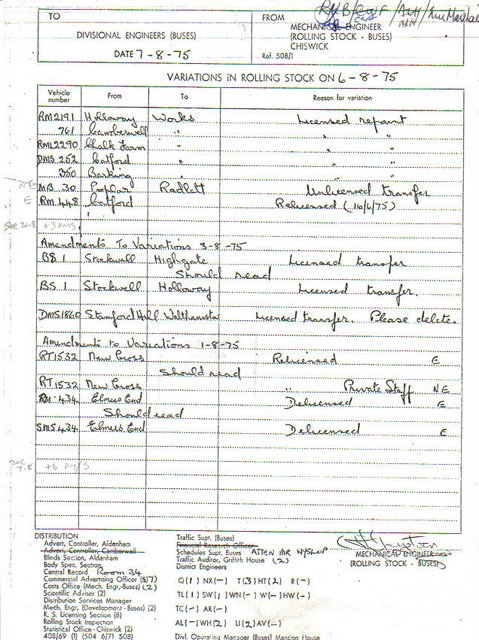 TO
DIVISIONAL ENGINEERS (BUSES)
DATE 7-8-75
FROM
MECHANICAL ENGINEER
(ROLLING STOCK - BUSES)
CHISWICK
Ref. 508/1
VARIATIONS IN ROLLING STOCK ON 6-8-75
Vehicle number From To Reason for variation
RM2191 Holloway Works Licensed repaint
761 Camberwell " " "
RML2290 Chalk Farm " " "
DMS 252 Catford " " "
350 Barking " " "
NE MB 30 Poplar Radlett Unlicensed transfer
E RM 448 Catford Relicensed (16/6/75)
+3 RMS
Amendments To Variations 3-8-75
BS 1 Stockwell Highgate Licensed transfer
Should read
BS 1 Stockwell Holloway Licensed transfer.
DMS1860 Stamford Hill Walthamstow Licensed transfer. Please delete.
Amendments to Variations 1-8-75
RT1532 New Cross Relicensed E
Should read
RT1532 New Cross " Private Staff NE
RM 434 Elmers End Delicensed E
Should read
SMS434 Elmers End Delicensed E
DISTRIBUTION
Advert. Controller, Aldenham
Advert. Controller, Camberwell
Blinds Section, Aldenham
Body Spec. Section
Central Record Room 34
Commercial Advertising Officer (37)
Costs Office (Mech. Engr.-Buses) (2)
Scientific Adviser (2)
Distribution Services Manager
Mech. Engr. (Development - Buses) (2)
R. S. Licensing Section (8)
Rolling Stock Inspection
Statistical Office - Chiswick (2)
408/69 (1) (504 6/71 508)
Traffic Supt. (Buses)
Financial Research Officer
Schedules Supt. Buses ATTEN MR HYSLOP
Traffic Auditor, Griffith House (2)
District Engineers
Q(1) NX(-) T(3) HT(2) R(-)
TL(1) SW(1) WN(-) W(-) HW(-)
TC(-) AR(-)
AL(-) WH(2) U(2) AV(-)
Divl. Operating Manager (Buses) Mansion House
MECHANICAL ENGINEER
(ROLLING STOCK - BUSES)